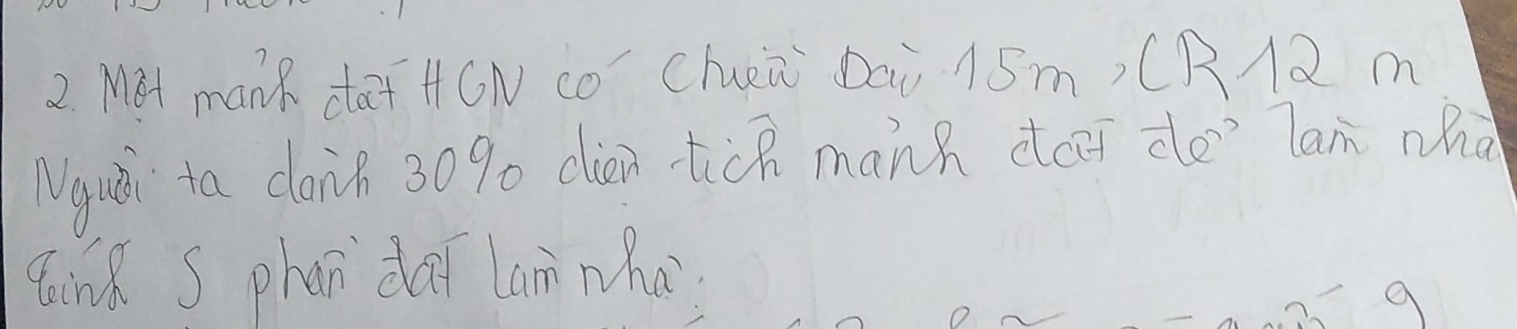 2. Một mảnh đất HCN có chiều Dài 15m, CR 12 m
Người ta dành 30% diện tích mảnh đất để làm nhà
tính S phần đất làm nhà.